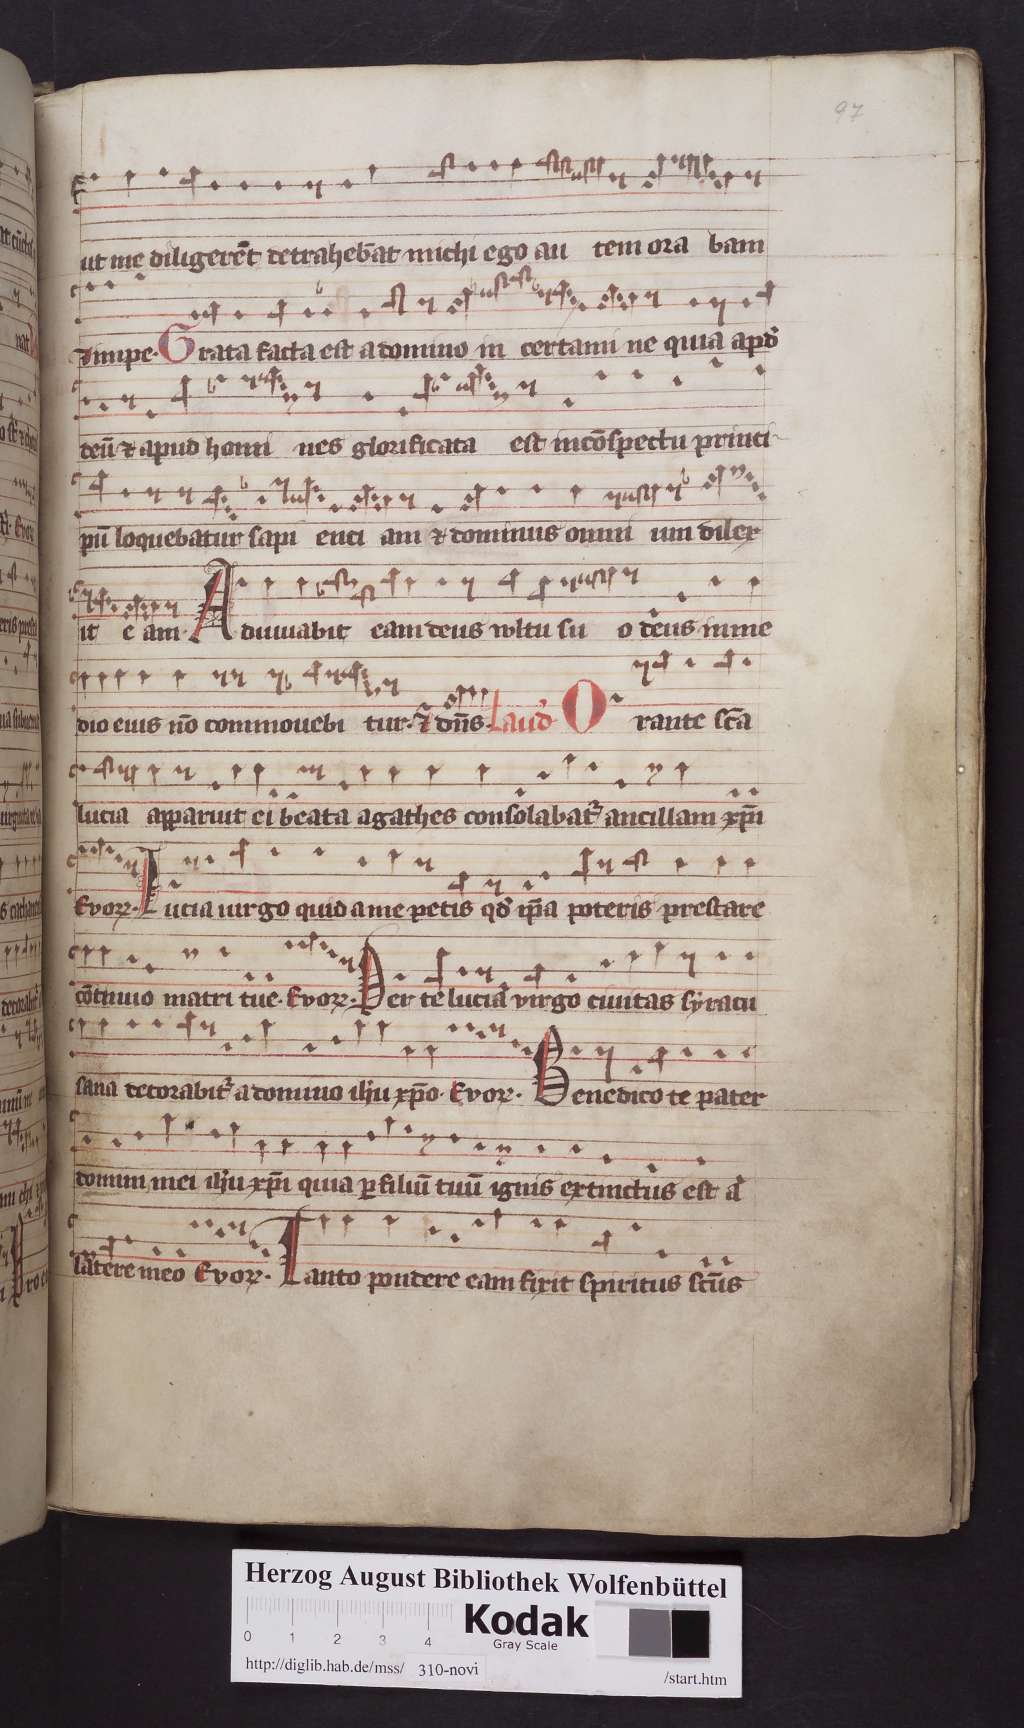 97
ut me diligerēt detrahebāt michi ego au tem ora bam
Impe. Grata facta est a domino in certami ne quia apd̄
deū ⁊ apud homi nes glorificata est in cōspectu princi
pū loquebatur sapi enti am ⁊ dominus omni um dilex
it e am. Adiuuabit eam deus wltu su o deus in me
dio eius nō commouebi tur. ⁊ dn̄s. Laud̄ Orante sc̄a
lucia apparuit ei beata agathes consolabat᷑ ancillam xp̄i
Evoꝝ. Lucia uirgo quid a me petis qd̄ ip̄a poteris prestare
cōtinuo matri tue. Evoꝝ. Per te lucia virgo ciuitas syracu
sana decorabit᷑ a domino ih̄u xp̄o. Evoꝝ. Benedico te pater
domini mei ih̄u xp̄i quia ꝑ filiū tuū ignis extinctus est a
latere meo Evoꝝ. Tanto pondere eam fixit spiritus sc̄us
Herzog August Bibliothek Wolfenbüttel
Kodak
Gray Scale
0 1 2 3 4
http://diglib.hab.de/mss/ 310-novi /start.htm